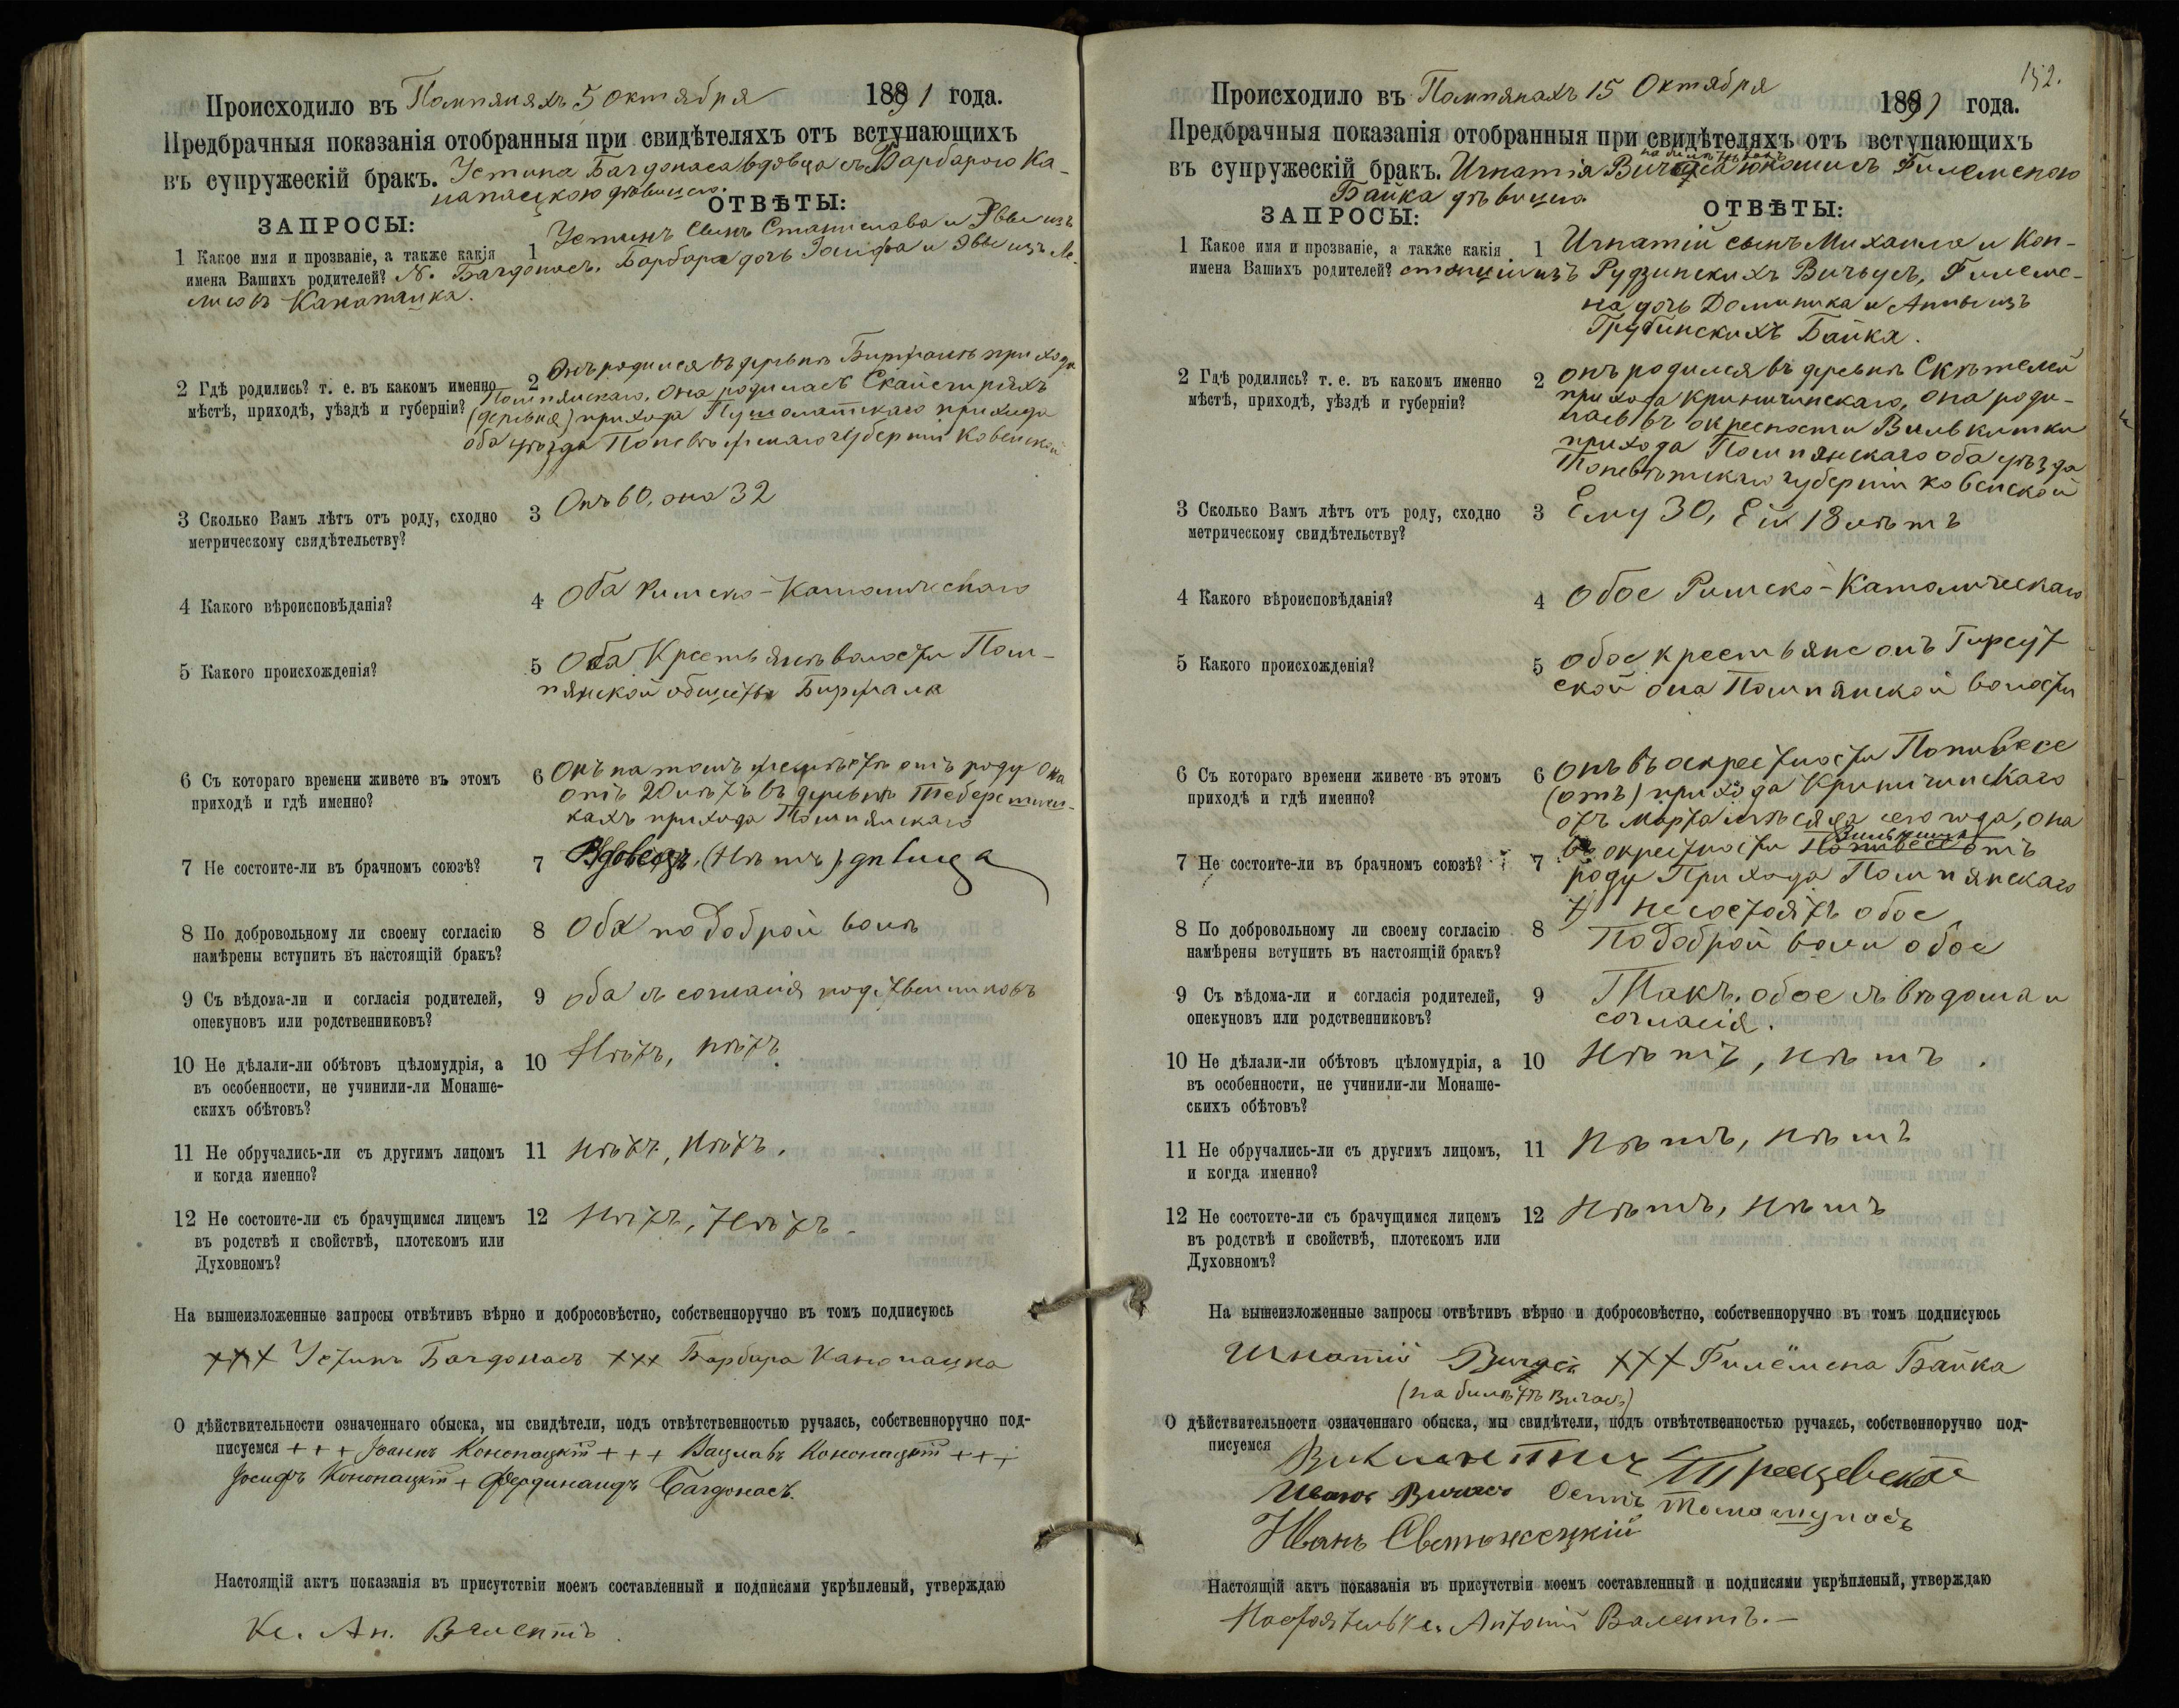 Происходило въ Помпянахъ 5 Октября 1891 года.
Предбрачныя показанія отобранныя при свидѣтеляхъ отъ вступающихъ
въ супружескій бракъ. Устина Багдонаса вдовца съ Барбарою Ка-
напацкою дѣвицею.
ЗАПРОСЫ:
ОТВѢТЫ:
1 Какое имя и прозваніе, а также какія
имена Вашихъ родителей?
1 Устинъ сынъ Станислава и Эвы изъ
N. Багдонасъ. Барбара дочь Іосифа и Эвы изъ
Канапацка.
2 Гдѣ родились? т. е. въ какомъ именно
мѣстѣ, приходѣ, уѣздѣ и губерніи?
2 Онъ родился въ деревнѣ прихода
Помпянскаго, она родилась
(деревня) прихода Пушолатскаго прихода
оба уѣзда Поневѣжскаго губерніи Ковенской
3 Сколько Вамъ лѣтъ отъ роду, сходно
метрическому свядѣтельству?
3 Онъ 60, она 32
4 Какого вѣроисповѣданія?
4 Оба Римско-Католическаго
5 Какого происхожденія?
5 Оба Крестьянѣ волости Пом-
пянской общества
6 Съ котораго времени живете въ этомъ
приходѣ и гдѣ именно?
6 Онъ на томъ же мѣстѣ отъ роду она
отъ 20 лѣтъ въ деревнѣ
кахъ прихода Помпянскаго
7 Не состоите-ли въ брачномъ союзѣ?
7 Вдовецъ, (Нѣтъ) дѣвица
8 По добровольному ли своему согласію
намѣрены вступить въ настоящій бракъ?
8 Оба по доброй волѣ
9 Съ вѣдома-ли и согласія родителей,
опекуновъ или родственниковъ?
9 оба съ согласія родственниковъ
10 Не дѣлали-ли обѣтовъ цѣломудрія, а
въ особенности, не учинили-ли Монаше-
скихъ обѣтовъ?
10 Нѣтъ, нѣтъ.
11 Не обручались-ли съ другимъ лицомъ
и когда именно?
11 Нѣтъ, Нѣтъ.
12 Не состоите-ли съ брачущимся лицемъ
въ родствѣ и свойствѣ, плотскомъ или
Духовномъ?
12 Нѣтъ, Нѣтъ.
На вышеизложенные запросы отвѣтивъ вѣрно и добросовѣстно, собственноручно въ томъ подписуюсь
+++ Устинъ Багдонасъ +++ Барбара Канопацка
О дѣйствительности означеннаго обыска, мы свидѣтели, подъ отвѣтственностью ручаясь, собственноручно под-
писуемся +++ Іоаннъ Конопацкій +++ Вацлавъ Конопацкій +++
Іосифъ Конопацкій + Фердинандъ Багдонасъ.
Настоящій актъ показанія въ присутствіи моемъ составленный и подписями укрѣпленый, утверждаю
Кс. Ан. Валентъ.
152.
Происходило въ Помпянахъ 15 Октября 1891 года.
Предбрачныя показанія отобранныя при свидѣтеляхъ отъ вступающихъ
въ супружескій бракъ. Игнатія юноши съ Филеменою
Байка дѣвицею
ЗАПРОСЫ:
ОТВѢТЫ:
1 Какое имя и прозваніе, а также какія
имена Вашихъ родителей?
1 Игнатій сынъ Михаила и Кон-
станціи изъ Рудзинскихъ Филеме-
на дочь Доминика и Анны изъ
Грубинскихъ Байка.
2 Гдѣ родились? т. е. въ какомъ именно
мѣстѣ, приходѣ, уѣздѣ и губерніи?
2 онъ родился въ деревнѣ
прихода Криничинскаго, она роди-
лась въ окрестности
прихода Помпянскаго оба уѣзда
Поневѣжскаго губерніи Ковенской
3 Сколько Вамъ лѣтъ отъ роду, сходно
метрическому свидѣтельству?
3 Ему 30, Ей 18 лѣтъ
4 Какого вѣроисповѣданія?
4 Обое Римско-Католическаго
5 Какого происхожденія?
5 обое крестьяне онъ
ской она Помпянской волости
6 Съ котораго времени живете въ этомъ
приходѣ и гдѣ именно?
6 онъ въ окрестности
(отъ) прихода Криничинскаго
отъ Марта мѣсяца сего года, она
въ окрестности отъ
роду Прихода Помпянскаго
7 Не состоите-ли въ брачномъ союзѣ?
7
7) не состоятъ обое
8 По добровольному ли своему согласію
намѣрены вступить въ настоящій бракъ?
8 По доброй воли обое
9 Съ вѣдома-ли и согласія родителей,
опекуновъ или родственниковъ?
9 Такъ. обое съ вѣдома и
согласія.
10 Не дѣлали-ли обѣтовъ цѣломудрія, а
въ особенности, не учинили-ли Монаше-
скихъ обѣтовъ?
10 Нѣтъ, нѣтъ.
11 Не обручались-ли съ другимъ лицомъ,
и когда именно?
11 Нѣтъ, нѣтъ
12 Не состоите-ли съ брачущимся лицемъ
въ родствѣ и свойствѣ, плотскомъ или
Духовномъ?
12 Нѣтъ, Нѣтъ
На вышеизложенные запросы отвѣтивъ вѣрно и добросовѣстно, собственноручно въ томъ подписуюсь
Игнатій +++ Филёмена Байка
О дѣйствительности означеннаго обыска, мы свидѣтели, подъ отвѣтственностью ручаясь, собственноручно под-
писуемся
Иванъ
Настоящій актъ показанія въ присутствіи моемъ составленный и подписями укрѣпленый, утверждаю
Настоятель Кс. Антоній Валентъ.